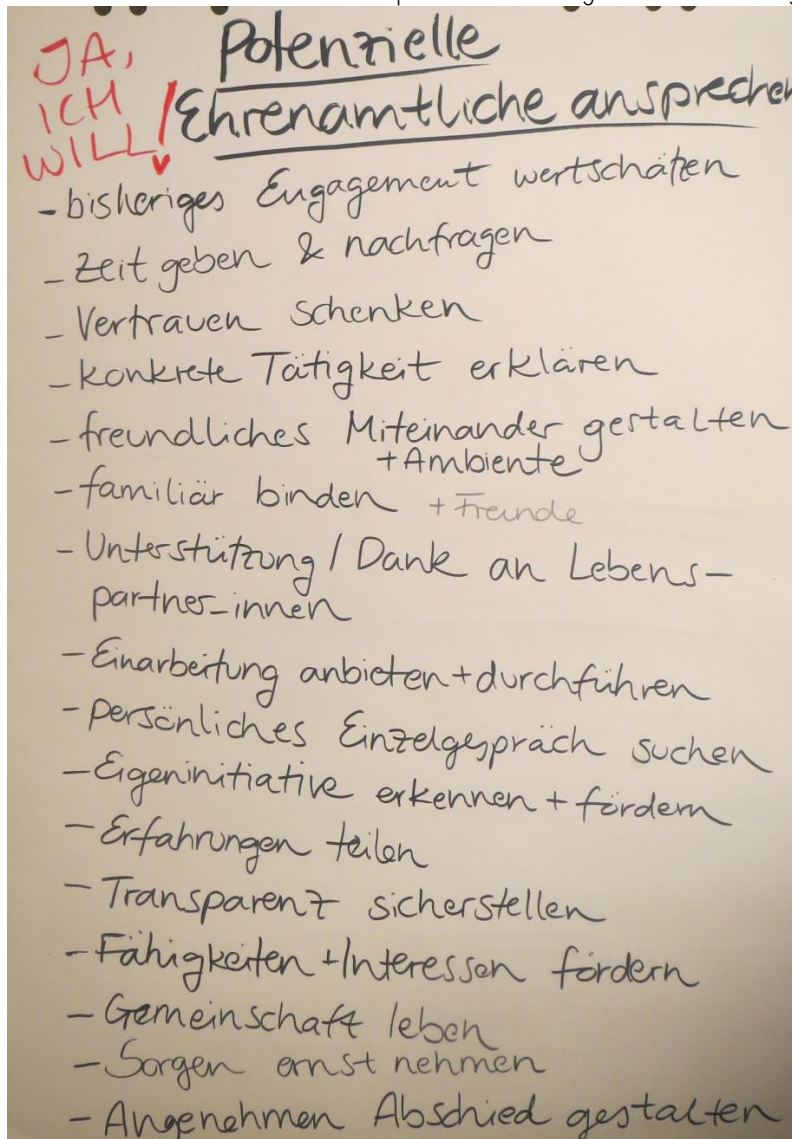 JA,
ICH
WILL!
Potenzielle
Ehrenamtliche ansprechen
- bisheriges Engagement wertschätzen
- Zeit geben & nachfragen
- Vertrauen schenken
- konkrete Tätigkeit erklären
- freundliches Miteinander gestalten
+ Ambiente
- familiär binden + Freunde
- Unterstützung / Dank an Lebens-
partner_innen
- Einarbeitung anbieten + durchführen
- persönliches Einzelgespräch suchen
- Eigeninitiative erkennen + fördern
- Erfahrungen teilen
- Transparenz sicherstellen
- Fähigkeiten + Interessen fördern
- Gemeinschaft leben
- Sorgen ernst nehmen
- Angenehmen Abschied gestalten